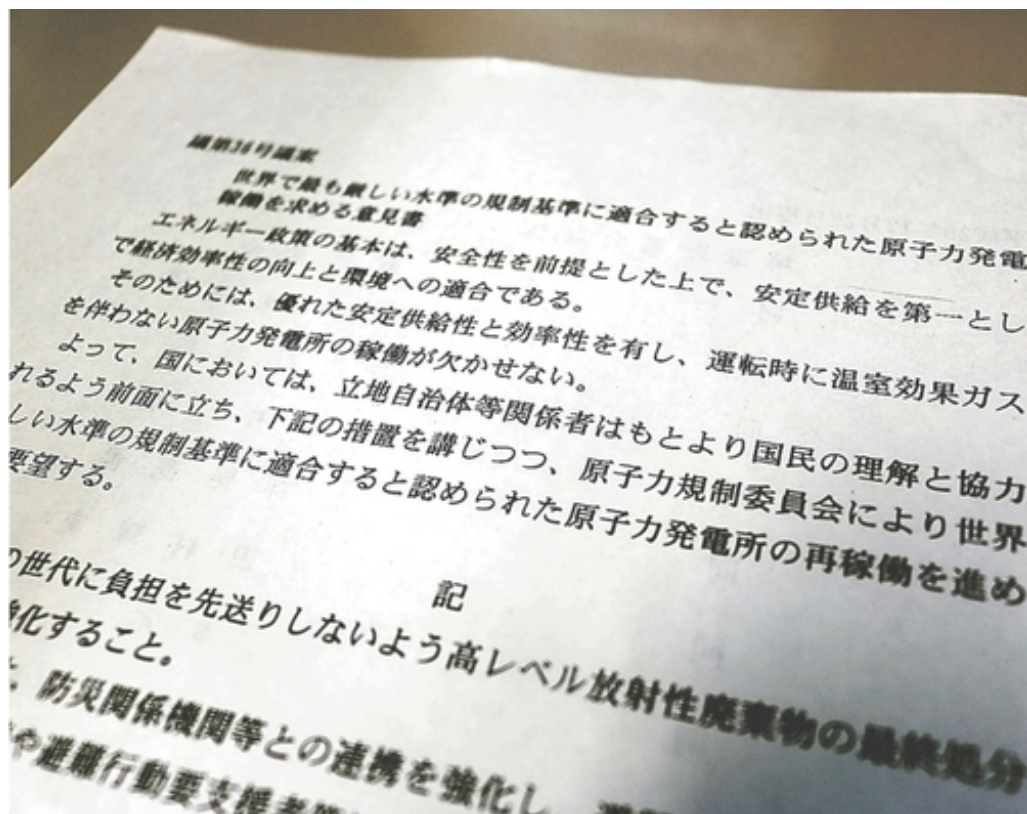 議第36号議案
世界で最も厳しい水準の規制基準に適合すると認められた原子力発電
稼働を求める意見書
エネルギー政策の基本は、安全性を前提とした上で、安定供給を第一とし
で経済効率性の向上と環境への適合である。
そのためには、優れた安定供給性と効率性を有し、運転時に温室効果ガス
を伴わない原子力発電所の稼働が欠かせない。
よって、国においては、立地自治体等関係者はもとより国民の理解と協力
れるよう前面に立ち、下記の措置を講じつつ、原子力規制委員会により世界
しい水準の規制基準に適合すると認められた原子力発電所の再稼働を進め
要望する。
記
の世代に負担を先送りしないよう高レベル放射性廃棄物の最終処分
化すること。
、防災関係機関等との連携を強化し、
や避難行動要支援者等